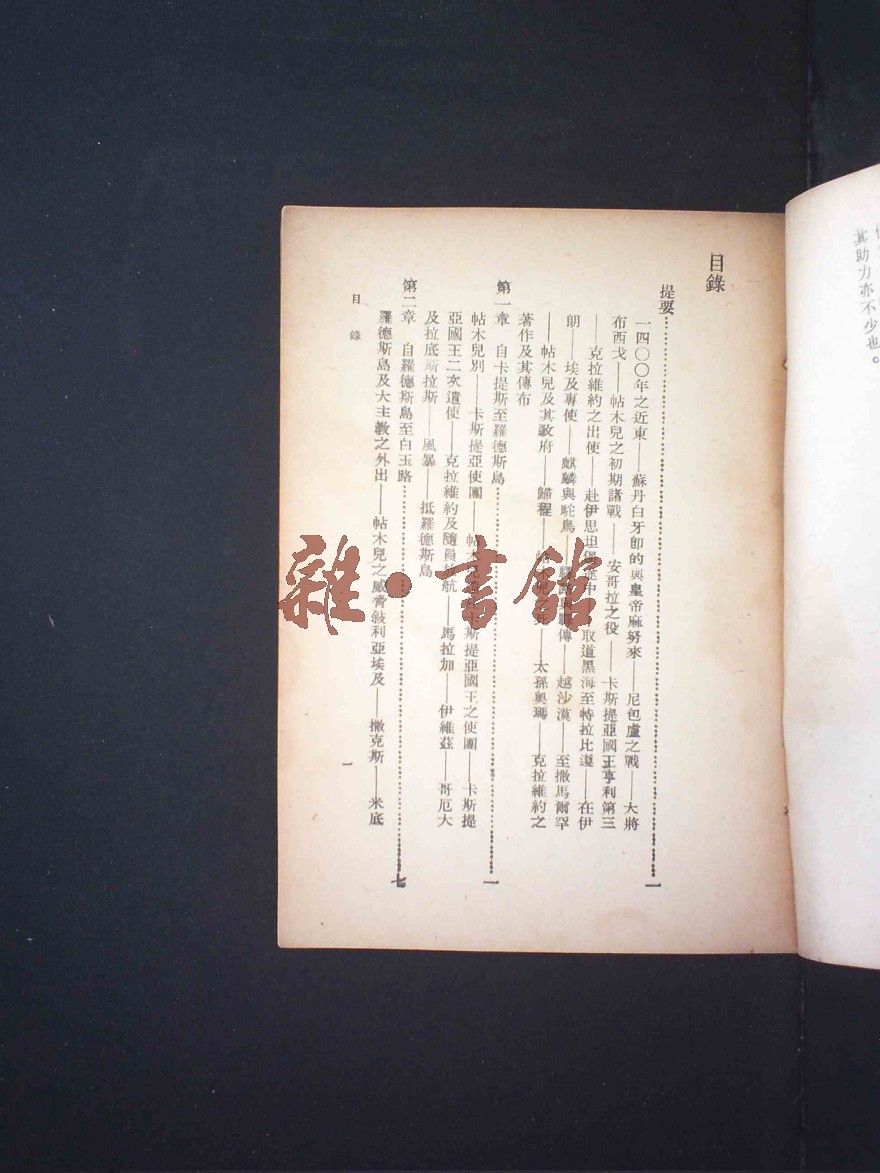 其助力亦不少也。
目錄
提要 一
一四〇〇年之近東——蘇丹白牙卽的與皇帝麻努來——尼包盧之戰——大將
布西戈——帖木兒之初期諸戰——安哥拉之役——卡斯提亞國王亨利第三
——克拉維約之出使——赴伊思坦堡途中——取道黑海至特拉比遜——在伊
朗——埃及專使——麒麟與駝鳥——越沙漠——至撒馬爾罕
——帖木兒及其政府——歸程——太孫奧瑪——克拉維約之
著作及其傳布
第一章 自卡提斯至羅德斯島 一
帖木兒別——卡斯提亞使團——帖木斯提亞國王之使團——卡斯提
亞國王二次遣使——克拉維約及隨員航——馬拉加——伊維茲——哥厄大
及拉底斯拉斯——風暴——抵羅德斯島
第二章 自羅德斯島至白玉路 七
羅德斯島及大主敎之外出——帖木兒之威脅敍利亞埃及——撒克斯——米底
目錄
一
雜·書館